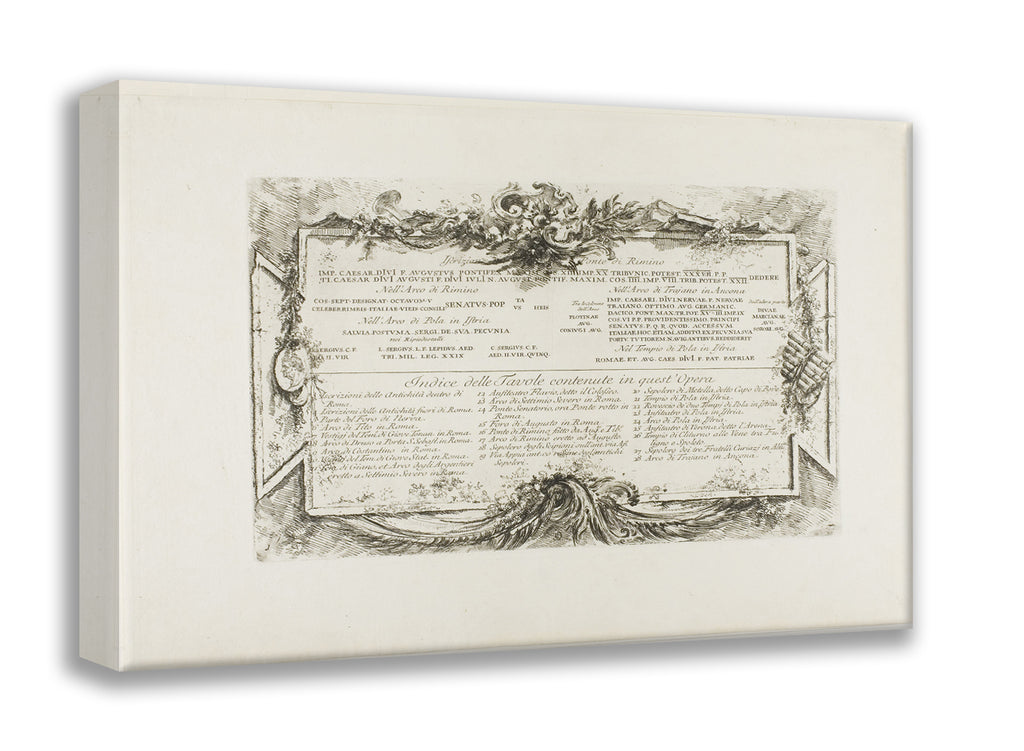 Ponte di Rimino
IMP. CAESAR. DIVI F. AVGVSTVS PONTIFEX MAXIM. XIII IMP. XX TRIBVNIC. POTEST. XXXVII. P. P.
TI. CAESAR DIVI AVGVSTI F. DIVI IVLI N. AVGVST. PONTIF. MAXIM. COS. IIII. IMP. VIII. TRIB. POTEST. XXII
DEDERE
Nell'Arco di Rimino
COS. SEPT. DESIGNAT. OCTAVOM. V
SENATVS. POP
CELEBERRIMEIS. ITALIAE. VIEIS. CONSILI
VS HEIS
Nell'Arco di Pola in Istria
SALVIA. POSTVMA. SERGI. DE. SVA. PECVNIA
nei Piedestalli
SERGIVS. C. F.
II. VIR
L. SERGIVS. L. F. LEPIDVS. AED.
TRI. MIL. LEG. XXIX
C. SERGIVS. C. F.
AED. II. VIR. QVINQ.
Nell'Arco di Trajano in Ancona
PLOTINAE
AVG.
CONIVGI AVG.
IMP. CAESARI. DIVI. NERVAE. F. NERVAE
TRAIANO. OPTIMO. AVG. GERMANIC.
DACICO. PONT. MAX. TR. POT. XV. IIII. IMP. IX
COS. VI P. P. PROVIDENTISSIMO. PRINCIPI
SENATVS. P. Q. R. QVOD. ACCESSVM
ITALIAE. HOC. ETIAM. ADDITO. EX. PECVNIA. SVA
PORTV. TVTIOREM. NAVIGANTIBVS. REDDIDERIT
DIVAE
MARCIANAE
AVG.
SORORI. AVG.
Nel Tempio di Pola in Istria
ROMAE. ET. AVG. CAES DIVI F. PAT. PATRIAE
Indice delle Tavole contenute in quest'Opera
Iscrizioni delle Antichità dentro di
Roma.
Iscrizioni delle Antichità fuori di Roma.
Parte del Foro di Nerva.
Arco di Tito in Roma.
Vestigj del Tem. di Giove Tonan. in Roma.
Arco di Druso a Porta S. Sebast. in Roma.
Arco di Costantino in Roma.
Vestigj del Tem. di Giove Stat. in Roma.
di Giano, et Arco degli Argentieri
eretto a Settimio Severo in Roma.
12 Anfiteatro Flavio, detto il Colosseo.
13 Arco di Settimio Severo in Roma.
14 Ponte Senatorio, ora Ponte rotto in
Roma.
15 Foro di Augusto in Roma
16 Ponte di Rimino fatto da Aug. e Tib.
17 Arco di Rimino eretto ad Augusto.
18 Sepolcro degli Scipioni sull'ant. via Ap.
19 Via Appia
Sepolcri.
20 Sepolcro di Metella detto Capo di Bove
21 Tempio di Pola in Istria.
22 Rovescio de due Tempi di Pola in Istria
23 Anfiteatro di Pola in Istria.
24 Arco di Pola in Istria
25 Anfiteatro di Verona detto l'Arena.
26 Tempio di Clitunno alle Vene tra Fu-
ligno e Spoleto.
27 Sepolcro dei tre Fratelli Curiazj in Alb.
28 Arco di Trajano in Ancona.